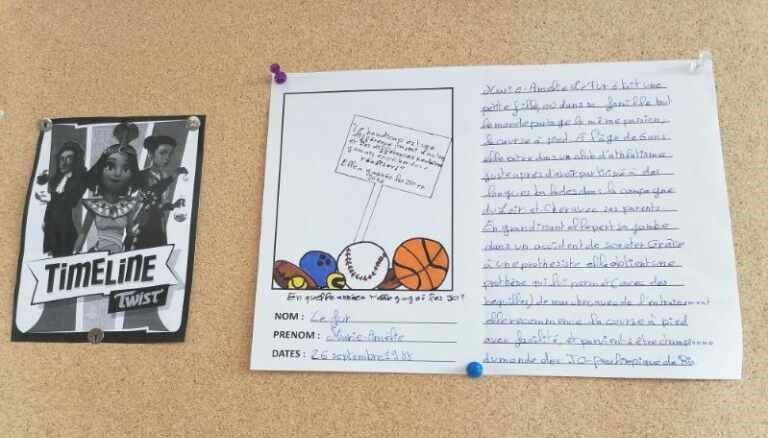 TIMELINE
TWIST
"Le handicap est une
différence
et
Elle a gagné les
En quelle année gagné les JO?
NOM : Le Fur
PRENOM : Marie Amélie
DATES : 26 septembre 1988
Marie-Amélie Le Fur était une
petite fille, où dans sa famille tout
le monde partage la même passion,
la course à pied. A l'âge de 6 ans
elle entre dans un club d'athlétisme
juste après d'avoir participé à des
longues balades dans la campagne
du Loir et Cher avec ses parents.
En grandissant elle perd sa jambe
dans un accident de scooter. Grâce
à une prothésiste elle obtient une
prothèse qui lui permet (avec des
béquilles) de marcher, avec de l'entraînement
elle recommence la course à pied
avec facilité, et parvient à être championne
du monde des JO paralympique de Rio